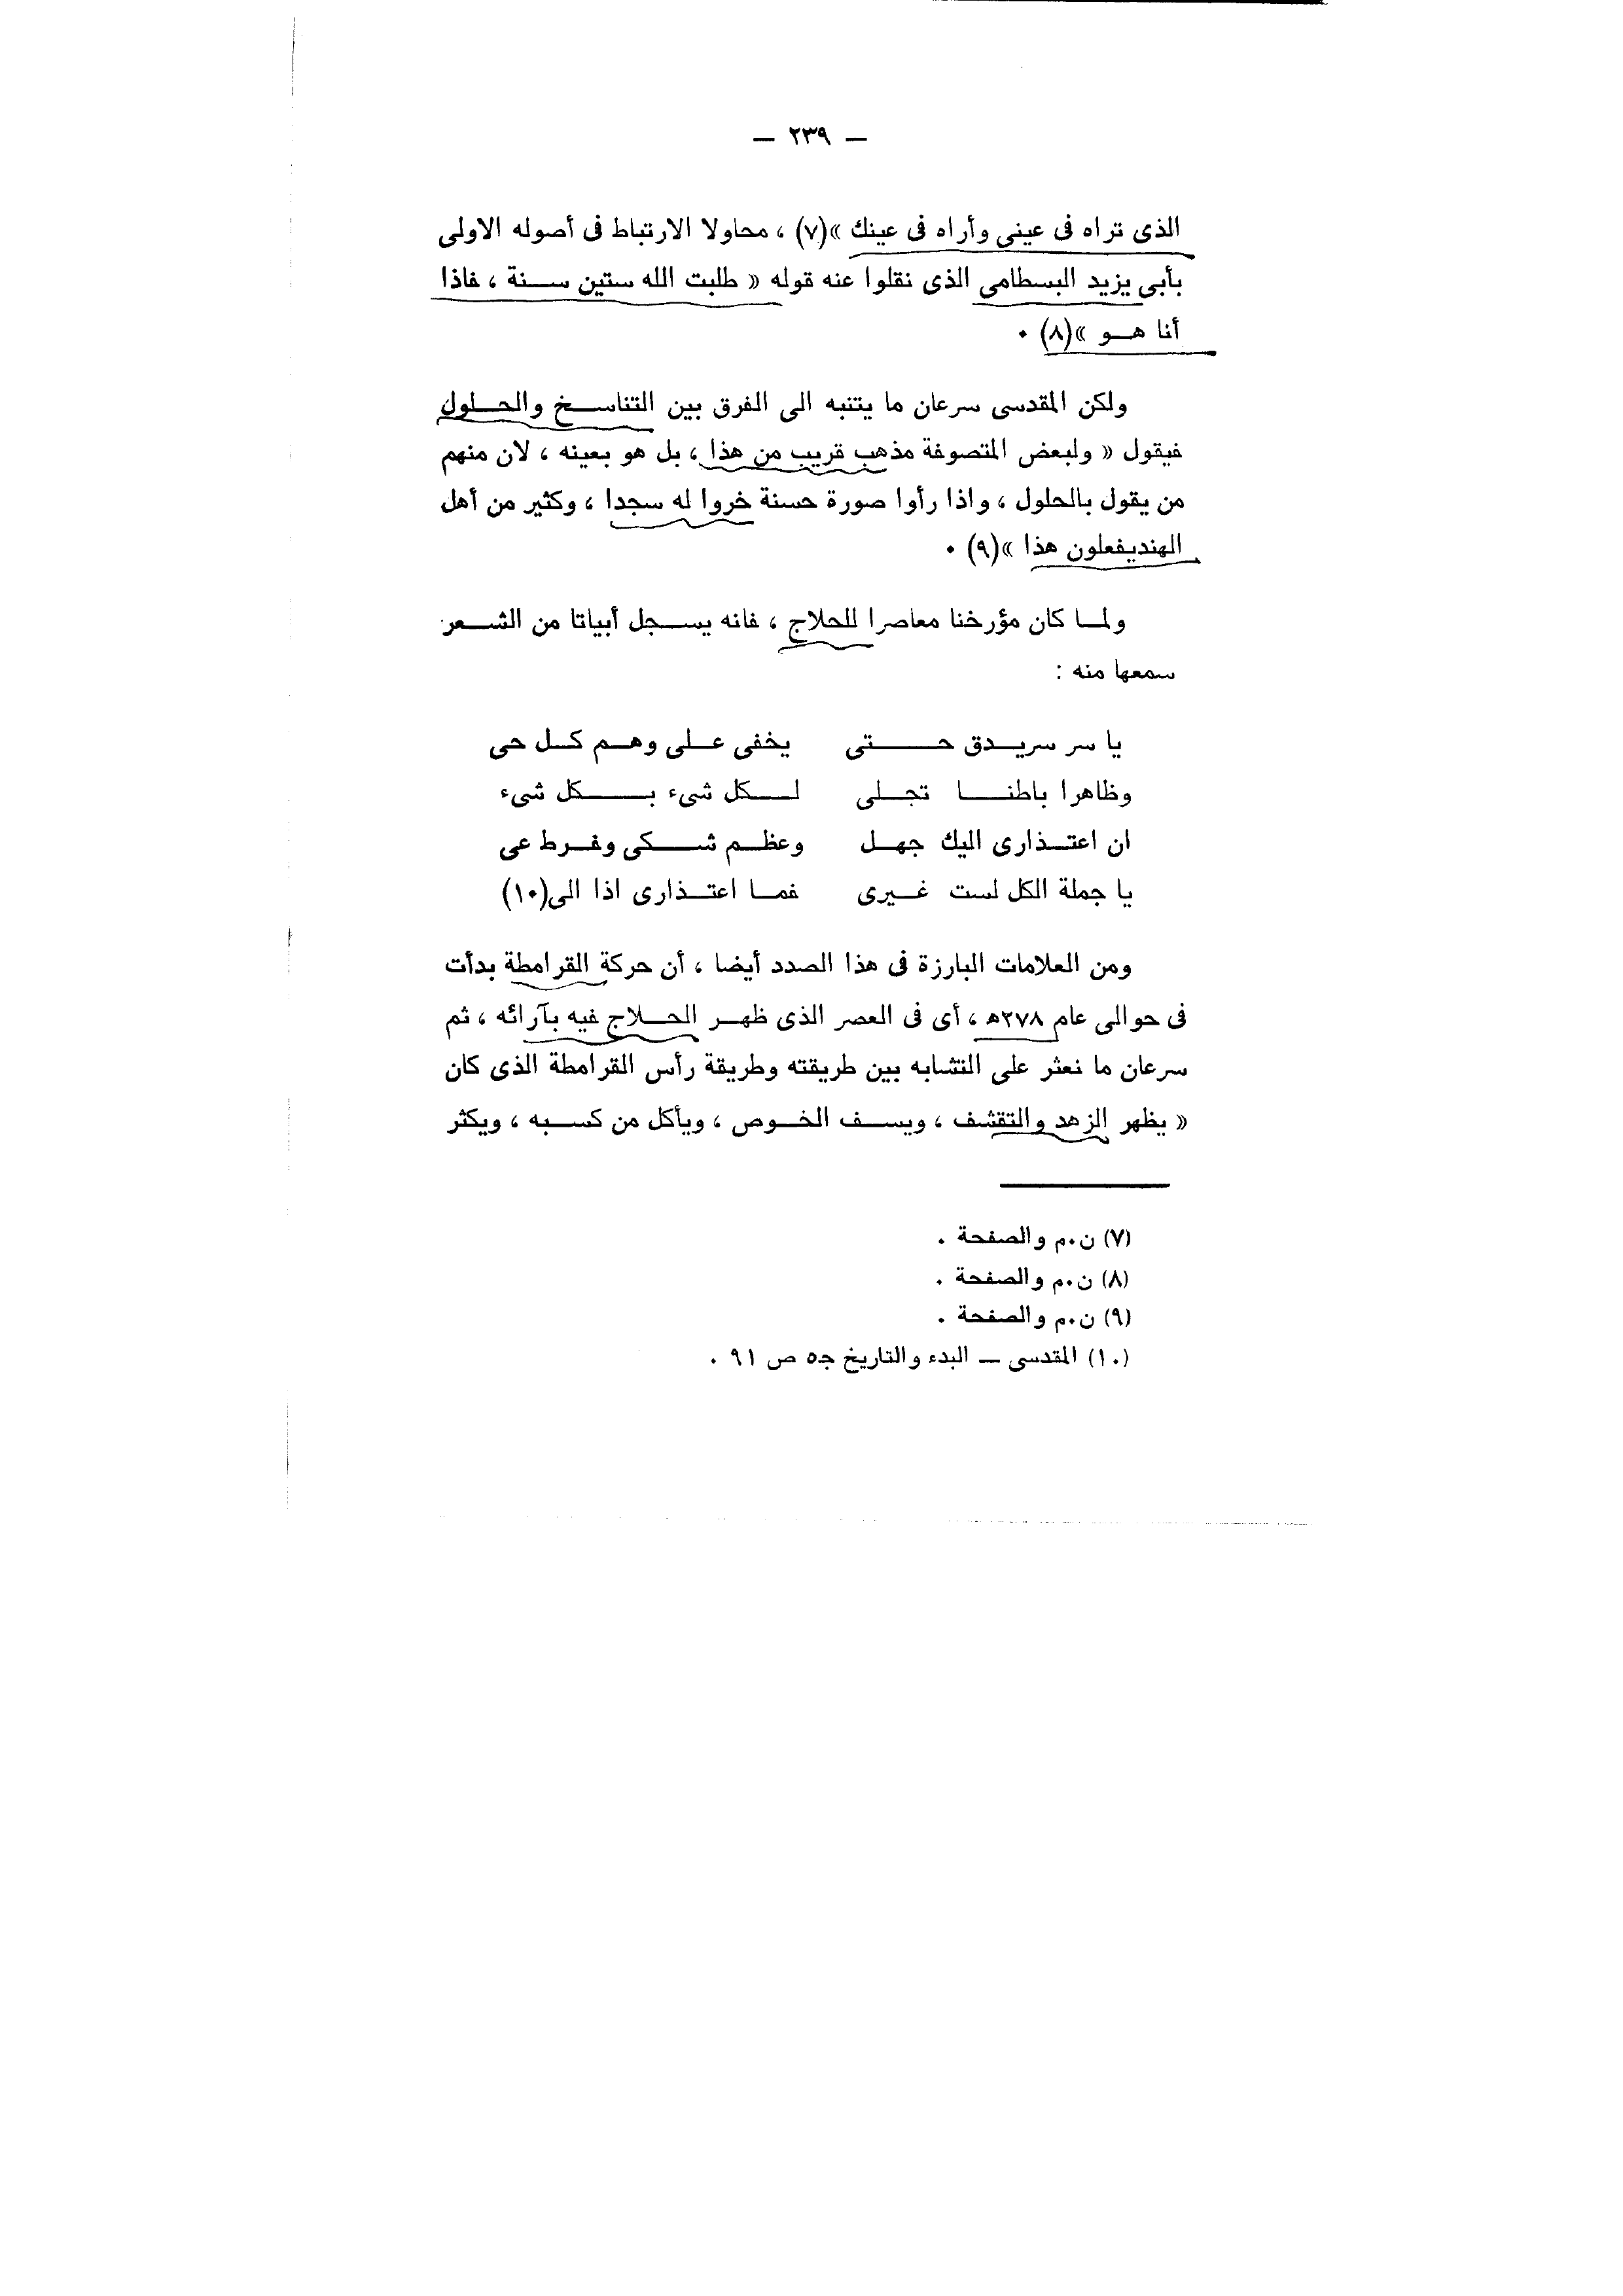 — ٢٣٩ —
الذى تراه فى عينى وأراه فى عينك »(٧) ، محاولا الارتباط فى أصوله الاولى
بأبى يزيد البسطامى الذى نقلوا عنه قوله « طلبت الله ستين ســنة ، فاذا
أنا هــو »(٨) ٠
ولكن المقدسى سرعان ما يتنبه الى الفرق بين التناســخ والحــلول
فيقول « ولبعض المتصوفة مذهب قريب من هذا ، بل هو بعينه ، لان منهم
من يقول بالحلول ، واذا رأوا صورة حسنة خروا له سجدا ، وكثير من أهل
الهنديفعلون هذا »(٩) ٠
ولمــا كان مؤرخنا معاصرا للحلاج ، فانه يســجل أبياتا من الشــعر
سمعها منه :
يا سر سريــدق حــــتى يخفى عــلى وهــم كــل حى
وظاهرا باطنــــا تجــلى لــــكل شىء بــــكل شىء
ان اعتــذارى اليك جهــل وعظــم شــــكى وفــرط عى
يا جملة الكل لست غــيرى فمــا اعتــذارى اذا الى(١٠)
ومن العلامات البارزة فى هذا الصدد أيضا ، أن حركة القرامطة بدأت
فى حوالى عام ٢٧٨ه ، أى فى العصر الذى ظهــر الحــلاج فيه بآرائه ، ثم
سرعان ما نعثر على التشابه بين طريقته وطريقة رأس القرامطة الذى كان
« يظهر الزهد والتقشف ، ويســف الخــوص ، ويأكل من كســبه ، ويكثر
(٧) ن٠م والصفحة ٠
(٨) ن٠م والصفحة ٠
(٩) ن٠م والصفحة ٠
(١٠) المقدسى — البدء والتاريخ ج٥ ص ٩١ ٠